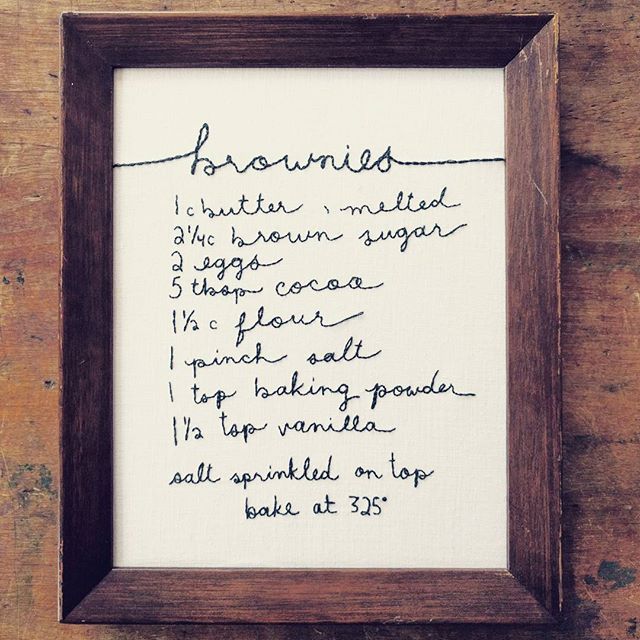 brownies
1 c butter, melted
2 1/4 c brown sugar
2 eggs
5 tbsp cocoa
1 1/2 c flour
1 pinch salt
1 tsp baking powder
1 1/2 tsp vanilla
salt sprinkled on top
bake at 325°